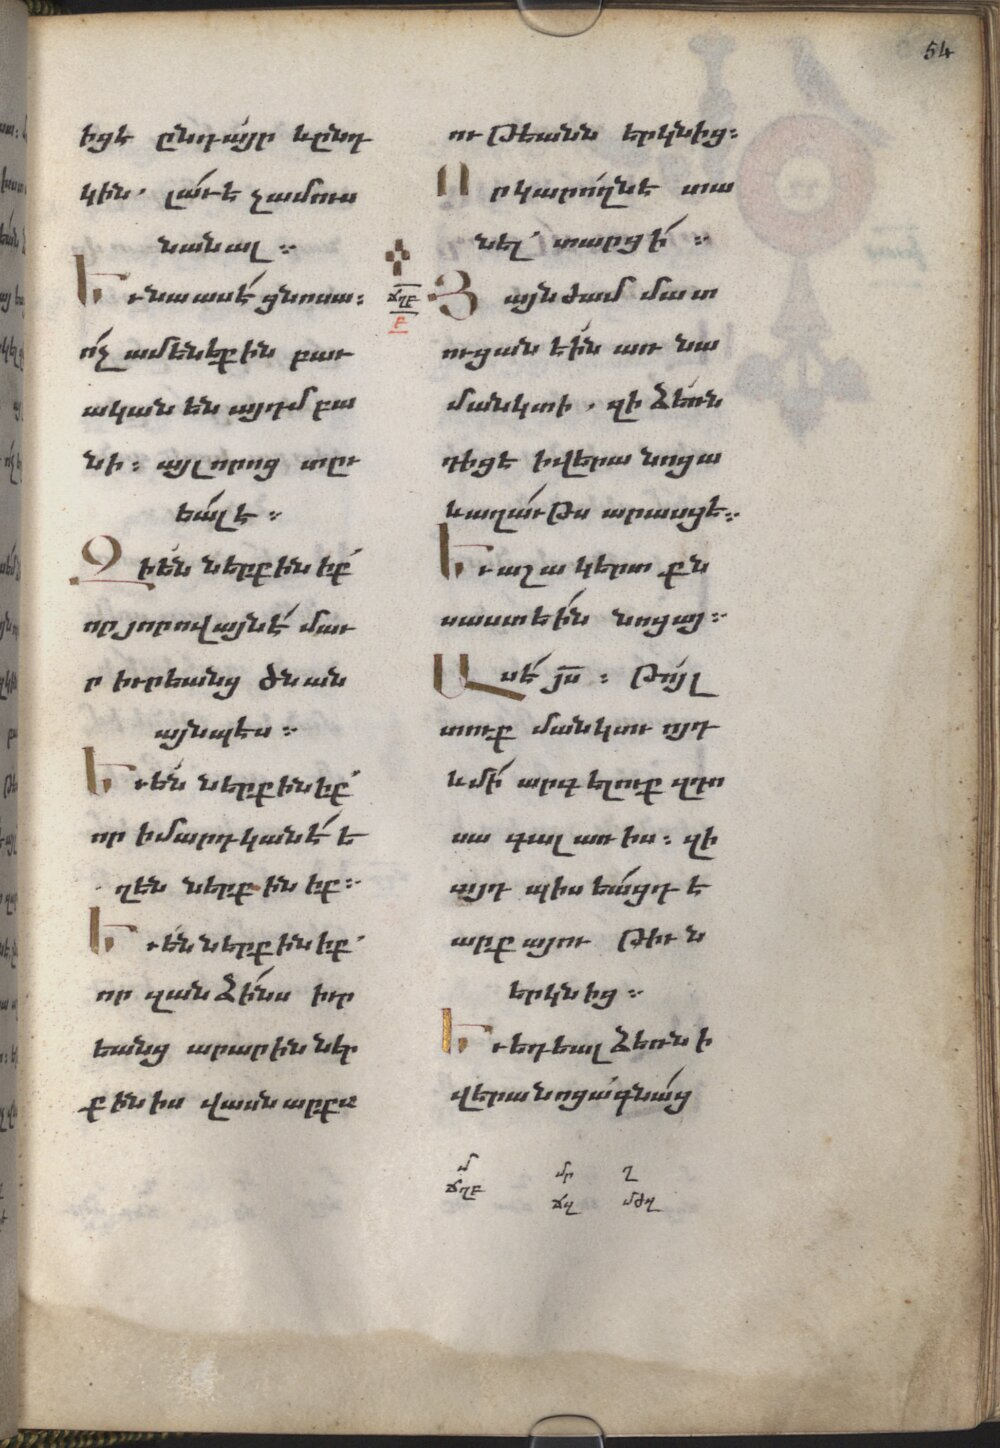 54
իցէ ընդ այր և ընդ
կին՝ լաւ է չամուս
նանալ։
Եւ նա ասէ ցնոսա։
ոչ ամենեքին բաւ
ական են այդմ բա
նի։ այլ որոց տըւ
եալ է։
Զի են ներքինիք՝
որ յորովայնէ մաւ
ր իւրեանց ծնան
այնպէս։
Եւ են ներքինիք՝
որ ի մարդկանէ ե
ղեն ներքինիք։
Եւ են ներքինիք՝
որ զանձինս իւր
եանց արարին ներ
քինիս վասն արքա
ու թեանն երկնից։
Որ կարողն է տա
նել՝ տարցի։
ՃՂԲ
Բ
Յայնժամ մատ
ուցան էին առ նա
մանկտի, զի ձեռն
դիցէ ի վերա նոցա
և աղաւթս արասցէ։
Եւ աշակերտքն
սաստեին նոցայ։
Ասէ յս։ Թոյլ
տուք մանկտւոյդ
և մի արգելուք զդո
սա գալ առ իս։ զի
այդպիսեացդ է
արքայութիւն
երկնից։
Եւ եդեալ ձեռն ի
վերա նոցա՝ գնաց
մ մր ղ
ՃՂԲ ՃԶ ՄԺԶ